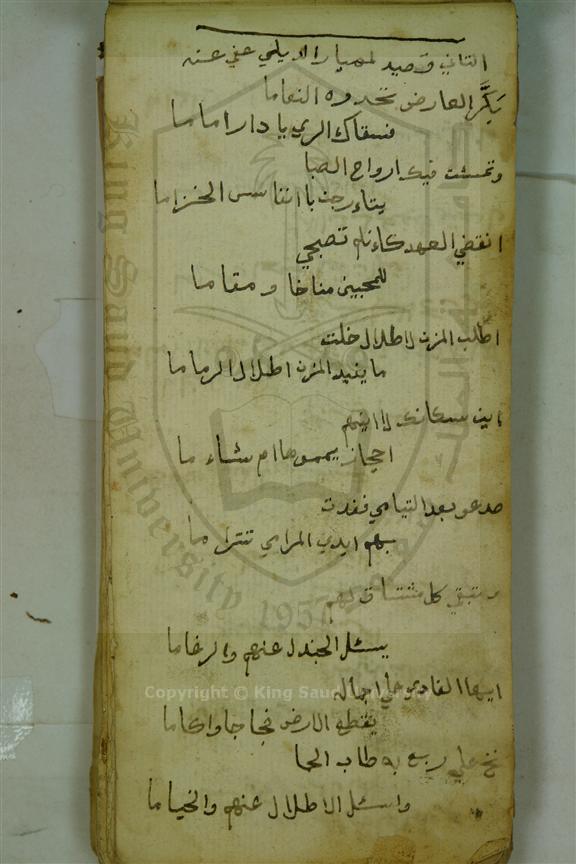 الثاني قصيد لمهيار الديلمي عفي عنه
بكّر العارض تحدوه النعاما
فسقاك الري يا دار اماما
وتمشت فيك ارواح الصبا
يتاءرجن بانفاس الخزاما
انقضى العهد كاءن لم تصبحي
للمحبين مناخا ومقاما
اطلب المزن لاطلال خلت
ما يفيد المزن اطلال الرماما
اين سكانك لا اين هم
احجاز يمموها ام شاء ما
صدعو بعد التيامي فغدت
بهم ايدي المرامي تترا ما
وتبقي كل مشتاق لهم
يسئل الجندل عنهم والرغاما
ايها الغادي على اجماله
يقطع الارض فجاجا واكاما
نخ على ربع به طاب الحما
واسئل الاطلال عنهم والخياما
King Saud University
1957
Copyright © King Saud University